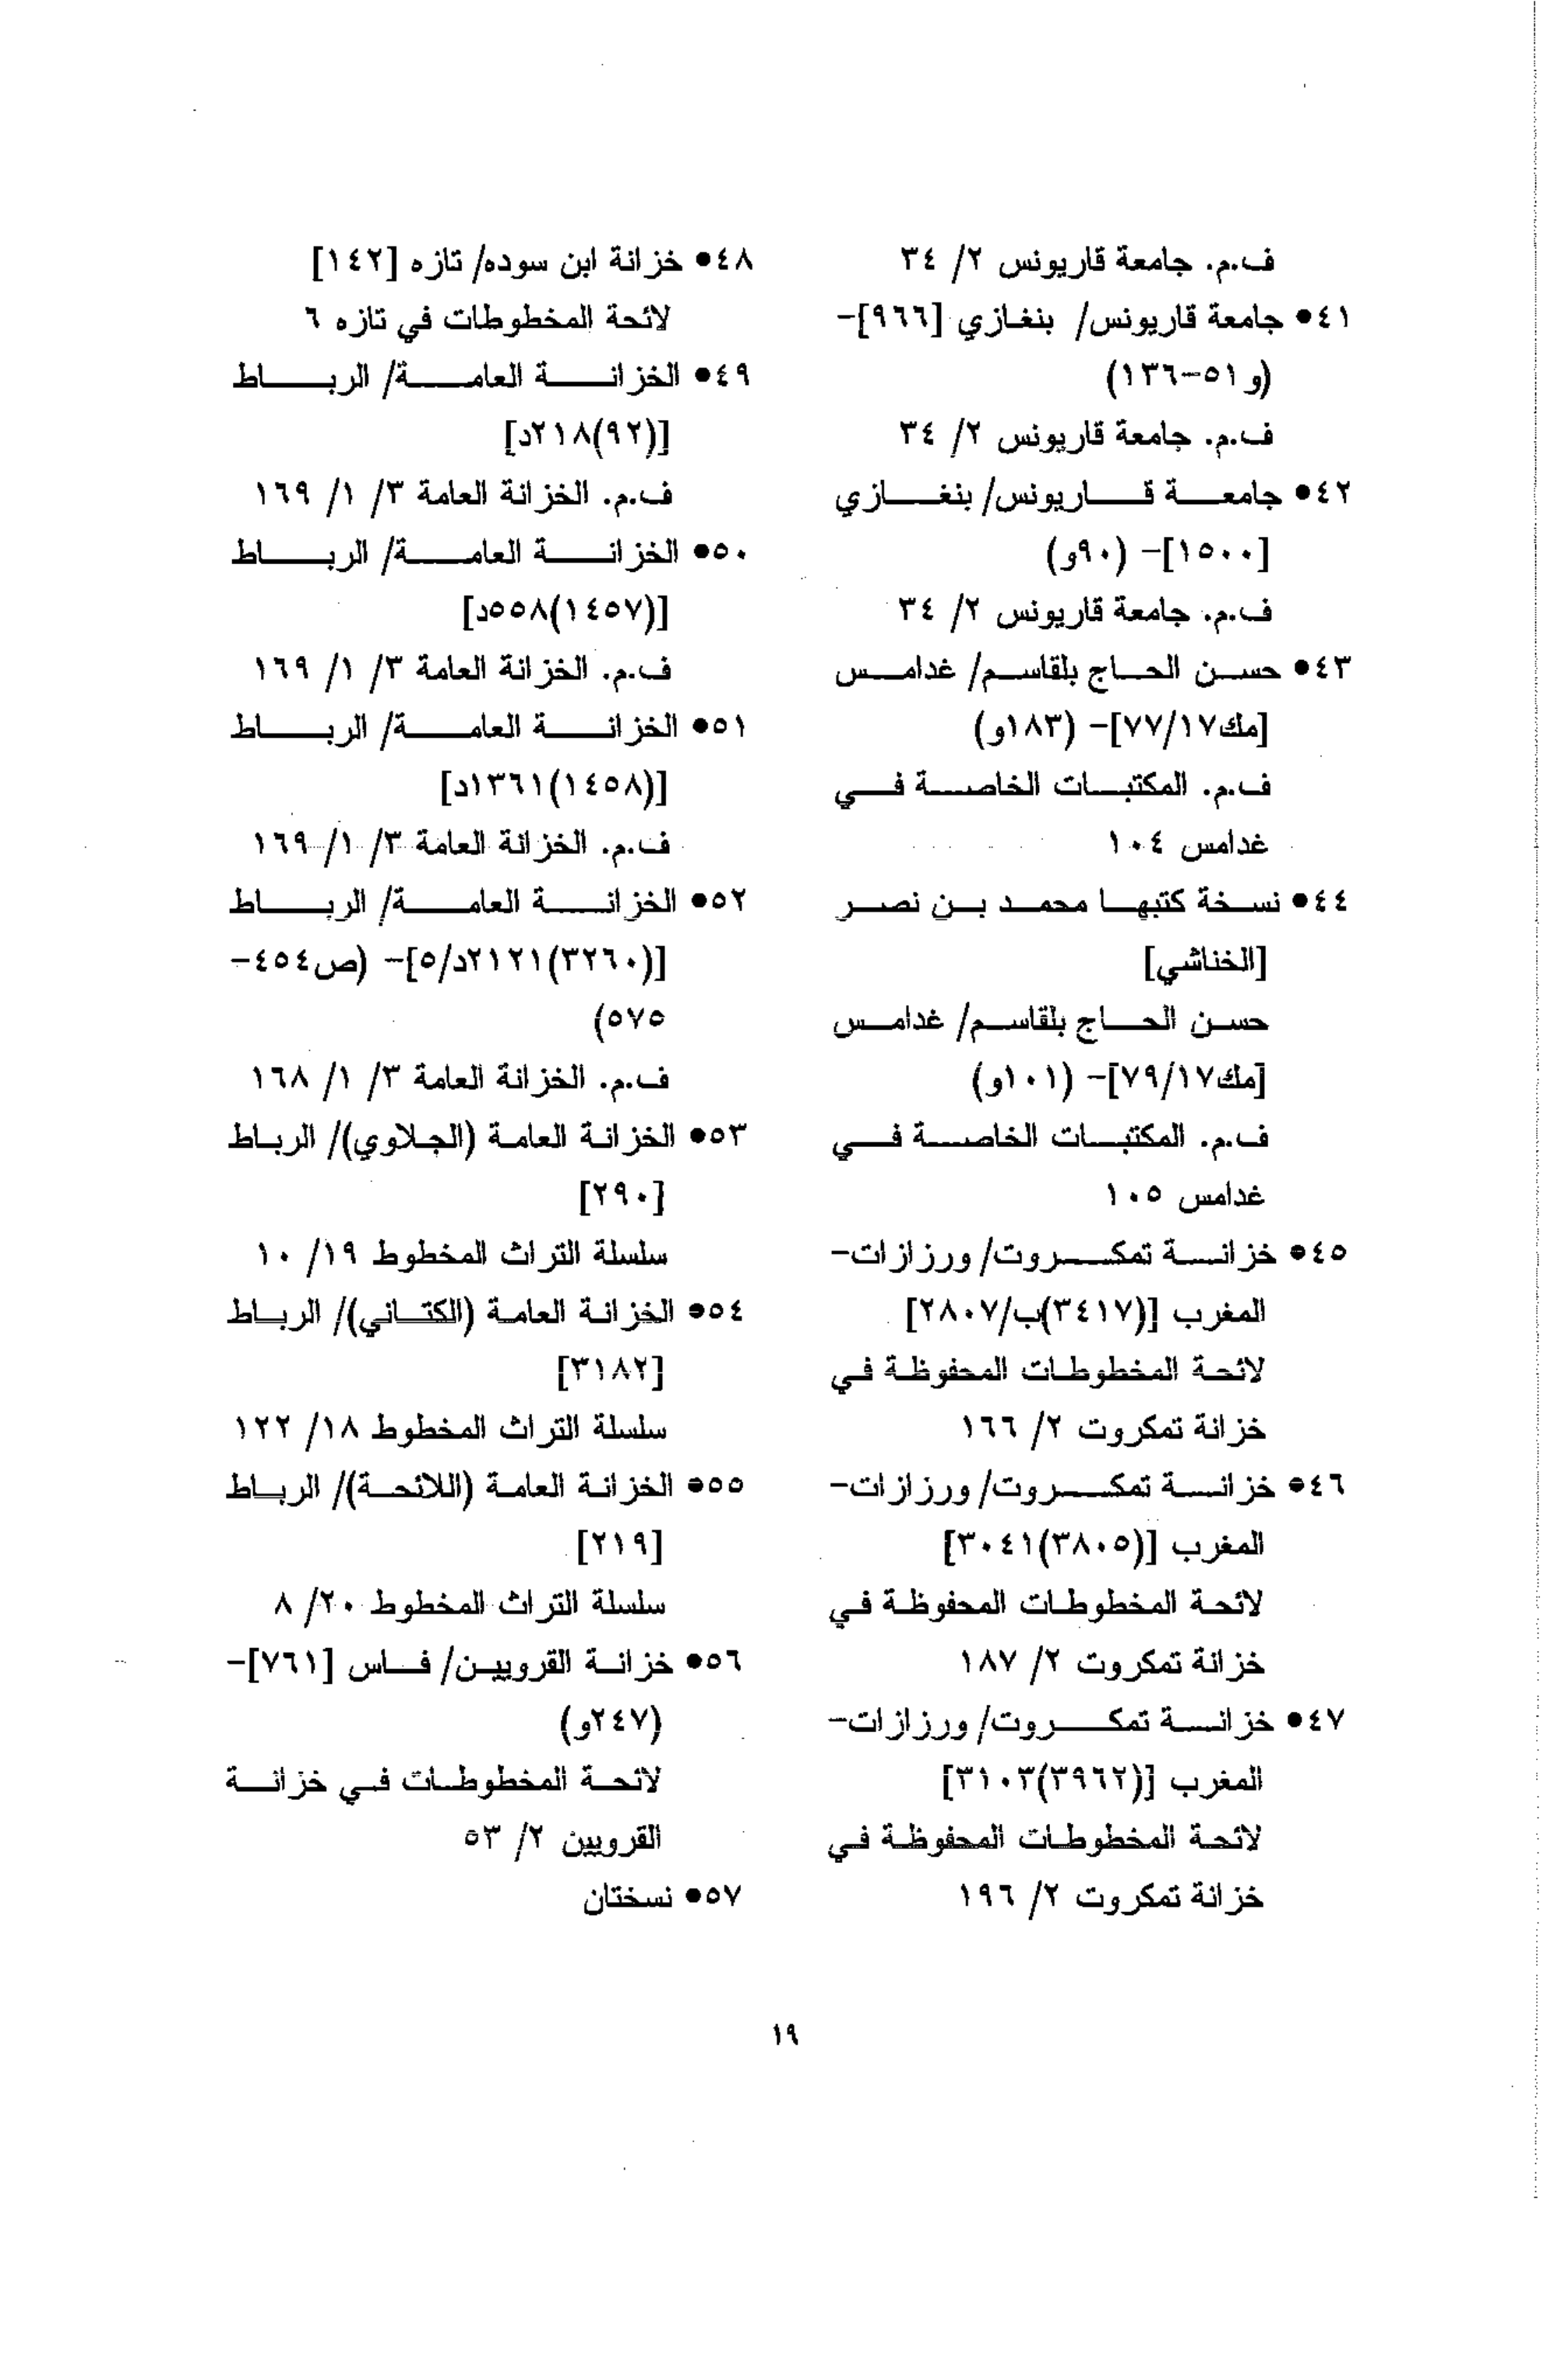 ف.م. جامعة قاريونس ٢/ ٣٤
٤١● جامعة قاريونس/ بنغازي [٩٦٦]-
(و٥١-١٣٦)
ف.م. جامعة قاريونس ٢/ ٣٤
٤٢● جامعة قاريونس/ بنغازي
[١٥٠٠]- (٩٠و)
ف.م. جامعة قاريونس ٢/ ٣٤
٤٣● حسن الحاج بلقاسم/ غدامس
[مك٧٧/١٧]- (١٨٣و)
ف.م. المكتبات الخاصة في
غدامس ١٠٤
٤٤● نسخة كتبها محمد بن نصر
[الخناشي]
حسن الحاج بلقاسم/ غدامس
[مك٧٩/١٧]- (١٠١و)
ف.م. المكتبات الخاصة في
غدامس ١٠٥
٤٥● خزانة تمكروت/ ورزازات-
المغرب [(٣٤١٧)ب/٢٨٠٧]
لائحة المخطوطات المحفوظة في
خزانة تمكروت ٢/ ١٦٦
٤٦● خزانة تمكروت/ ورزازات-
المغرب [(٣٨٠٥)٣٠٤١]
لائحة المخطوطات المحفوظة في
خزانة تمكروت ٢/ ١٨٧
٤٧● خزانة تمكروت/ ورزازات-
المغرب [(٣٩٦٢)٣١٠٣]
لائحة المخطوطات المحفوظة في
خزانة تمكروت ٢/ ١٩٦
٤٨● خزانة ابن سوده/ تازه [١٤٢]
لائحة المخطوطات في تازه ٦
٤٩● الخزانة العامة/ الرباط
[(٩٢)٢١٨د]
ف.م. الخزانة العامة ٣/ ١/ ١٦٩
٥٠● الخزانة العامة/ الرباط
[(١٤٥٧)٥٥٨د]
ف.م. الخزانة العامة ٣/ ١/ ١٦٩
٥١● الخزانة العامة/ الرباط
[(١٤٥٨)١٣٦١د]
ف.م. الخزانة العامة ٣/ ١/ ١٦٩
٥٢● الخزانة العامة/ الرباط
[(٣٢٦٠)٢١٢١د/٥]- (ص٤٥٤-
٥٧٥)
ف.م. الخزانة العامة ٣/ ١/ ١٦٨
٥٣● الخزانة العامة (الجلاوي)/ الرباط
[٢٩٠]
سلسلة التراث المخطوط ١٩/ ١٠
٥٤● الخزانة العامة (الكتاني)/ الرباط
[٣١٨٢]
سلسلة التراث المخطوط ١٨/ ١٢٢
٥٥● الخزانة العامة (اللائحة)/ الرباط
[٢١٩]
سلسلة التراث المخطوط ٢٠/ ٨
٥٦● خزانة القرويين/ فاس [٧٦١]-
(٢٤٧و)
لائحة المخطوطات في خزانة
القرويين ٢/ ٥٣
٥٧● نسختان
١٩